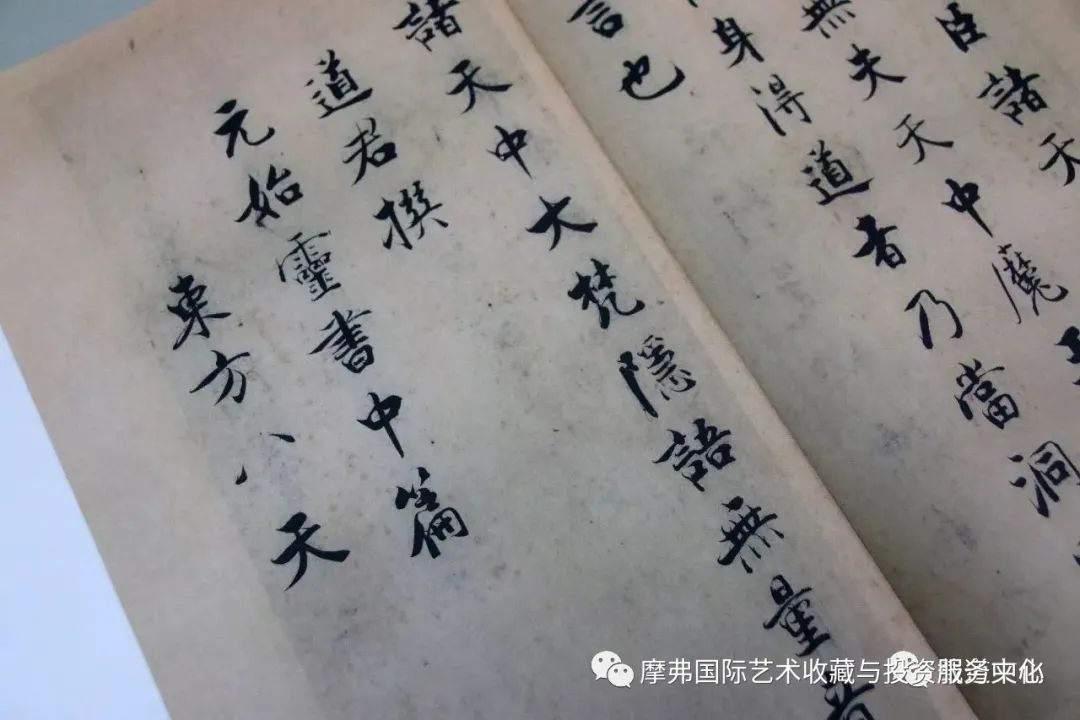 臣諸天
無夫天中魔王
身得道者乃當洞
言也
諸天中大梵隱語無量音
道君撰
元始靈書中篇
東方八天
摩弗国际艺术收藏与投资服务中心